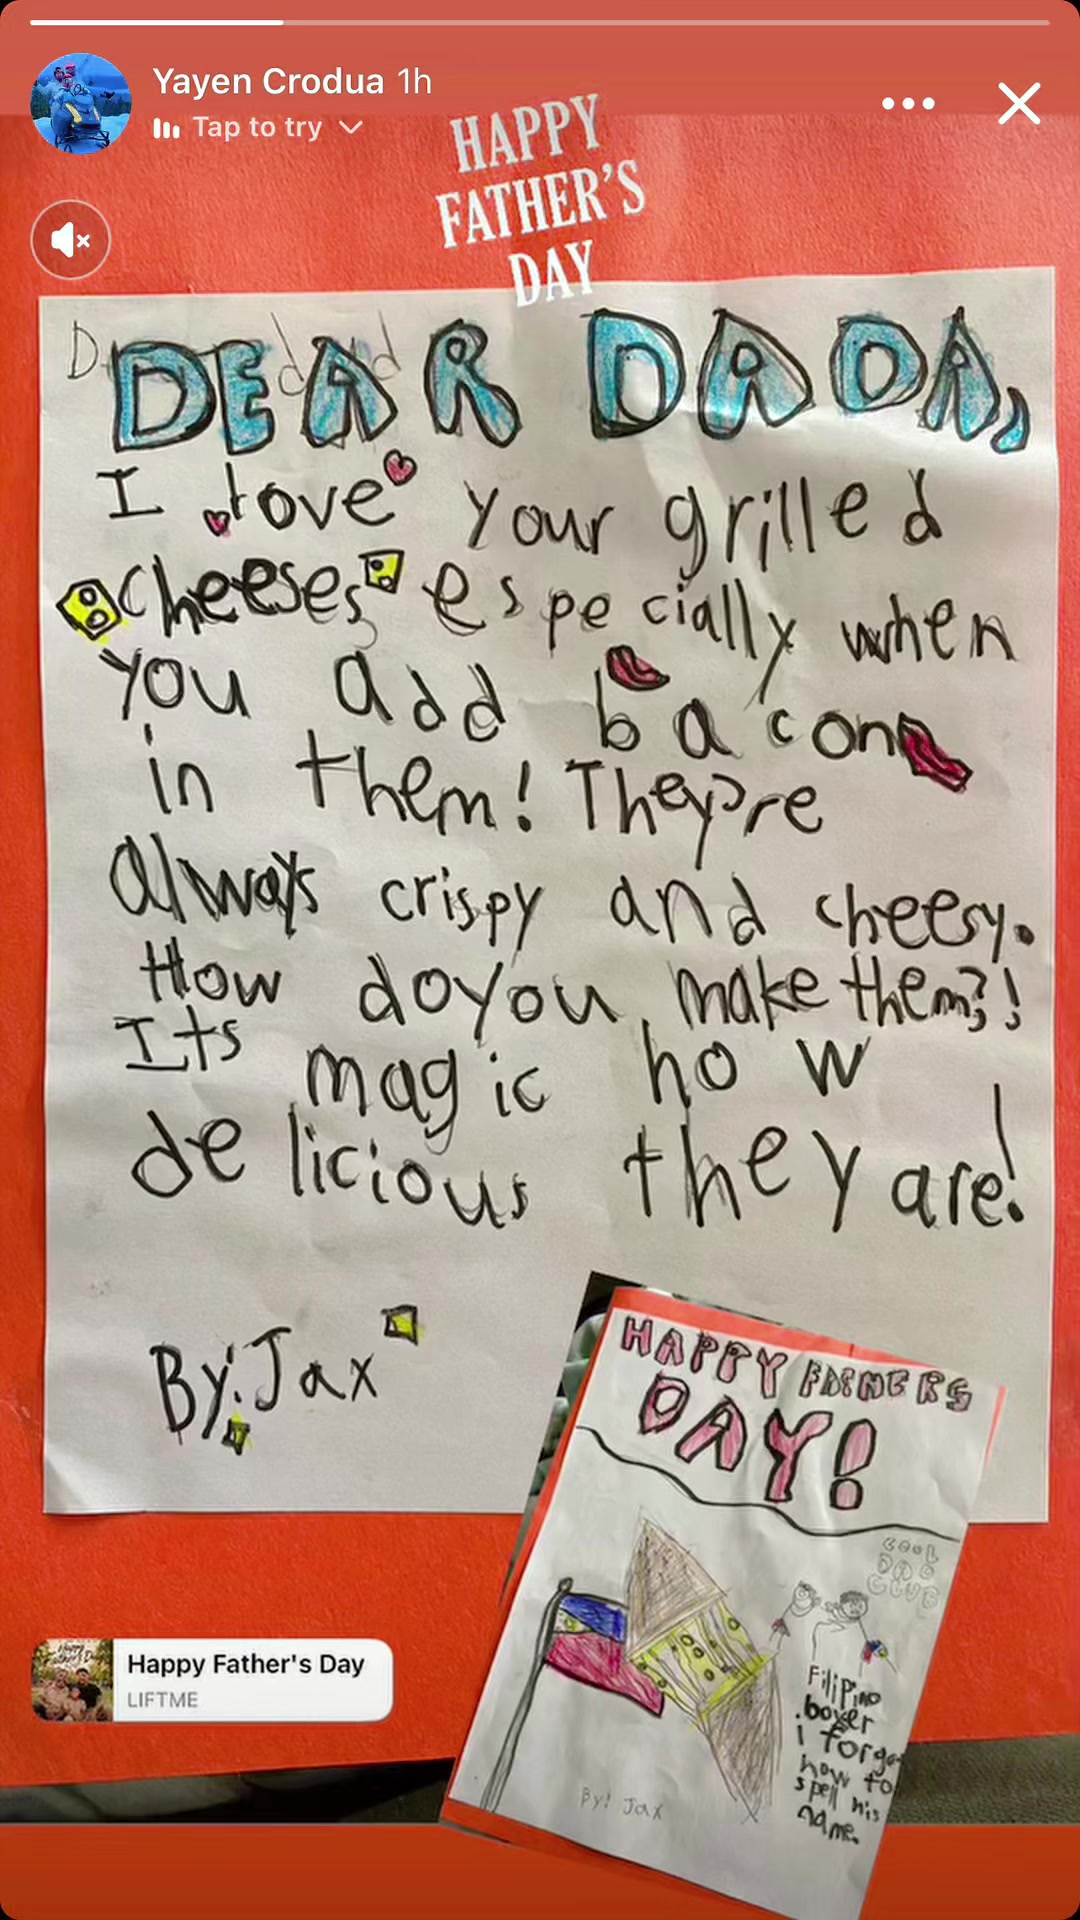 Yayen Crodua 1h
Tap to try
HAPPY
FATHER'S
DAY
DEAR DADA,
I love your grilled
cheeses especially when
you add bacon
in them! They're
always crispy and cheesy.
How do you make them?!
Its magic how
delicious they are!
By: Jax
HAPPY FATHERS
DAY!
COOL
DAD
CLUB
Filipino
boxer
i forgot
how to
spell his
name.
By: Jax
Happy Father's Day
LIFTME